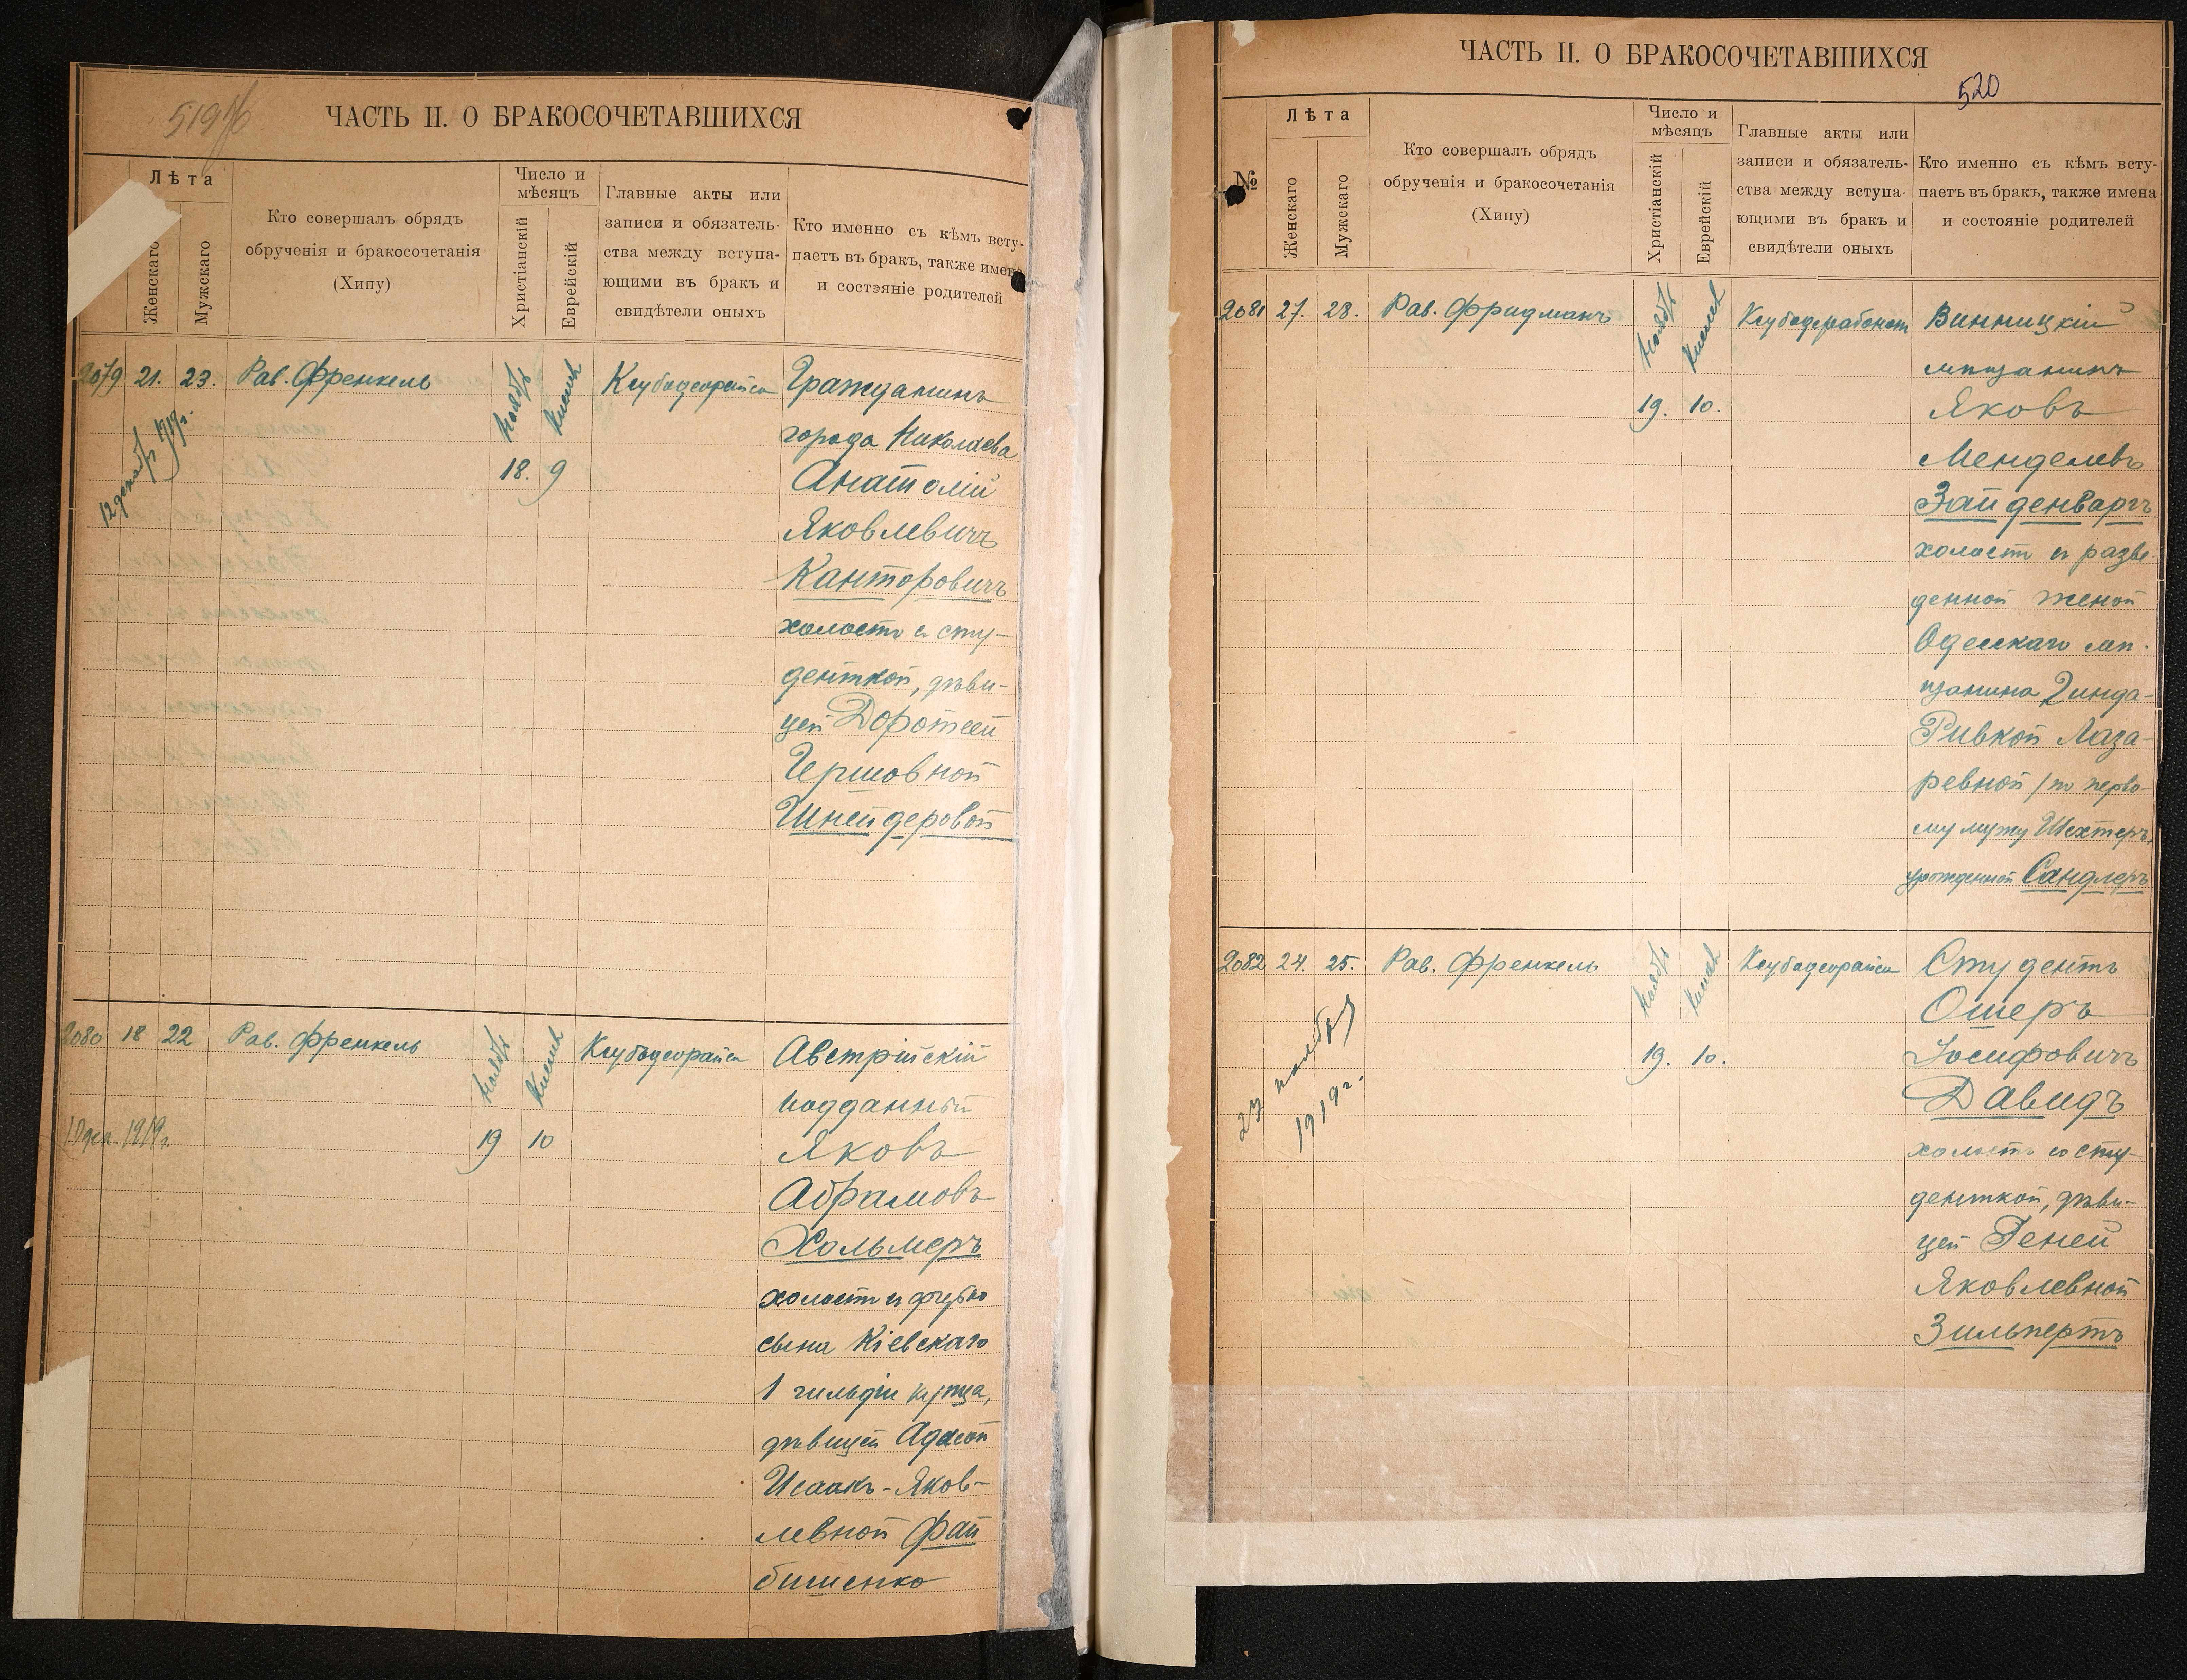 519 об
ЧАСТЬ II. О БРАКОСОЧЕТАВШИХСЯ
Лѣта
Женскаго
Мужскаго
Кто совершалъ обрядъ
обрученія и бракосочетанія
(Хипу)
Число и
мѣсяцъ
Христіанскій
Еврейскій
Главные акты или
записи и обязатель-
ства между вступа-
ющими въ бракъ и
свидѣтели оныхъ
Кто именно съ кѣмъ всту-
паетъ въ бракъ, также имена
и состэяніе родителей
2079 21. 23. Рав. Френкель
Ноябрь
Кислев
18. 9
12 декабр 1919г.
Ксубадеорайса
Гражданинъ
города Николаева
Анатолій
Яковлевичъ
Канторовичъ
холостъ съ сту-
денткой, дѣви-
цей Доротеей
Гершовной
Шнейдеровой
2080 18 22 Рав. Френкель
Ноябрь
Кислев
19 10
10 дек. 1919г.
Ксубадеорайса
Австрійскій
подданный
Яковъ
Абрамовъ
Хольмеръ
холостъ съ
сына Кіевскаго
1 гильдіи купца,
дѣвицей Адасой
Исаакъ-Яков-
левной Фай
бишенко
ЧАСТЬ II. О БРАКОСОЧЕТАВШИХСЯ
520
№
Лѣта
Женскаго
Мужскаго
Кто совершалъ обрядъ
обрученія и бракосочетанія
(Хипу)
Число и
мѣсяцъ
Христіанскій
Еврейскій
Главные акты или
записи и обязатель-
ства между вступа-
ющими въ бракъ и
свидѣтели оныхъ
Кто именно съ кѣмъ всту-
паетъ въ бракъ, также имена
и состояніе родителей
2081 27. 28. Рав. Фридманъ
Ноябрь
Кислев
19. 10.
Ксубадерабонон
Винницкій
мѣщанинъ
Яковъ
Менделевъ
Зайденваргъ
холостъ съ разве-
денной женой
Одесскаго мѣ-
щанина Гинда-
Ривкой Лаза-
ревной /по перво-
му мужу Шехтеръ,
урожденной Сандлеръ
2082 24. 25. Рав. Френкель
Ноябрь
Кислев
19. 10.
27 ноября
1919г.
Ксубадеорайса
Студентъ
Ошеръ
Іосифовичъ
Давидъ
холостъ со сту-
денткой, дѣви-
цей Геней
Яковлевной
Зильпертъ